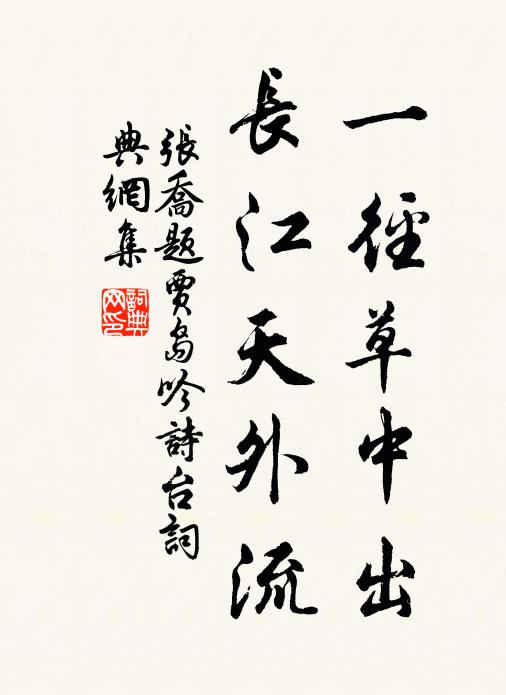 一徑草中出
長江天外流
張喬題賈島吟詩台詞
典網集
詞典网印